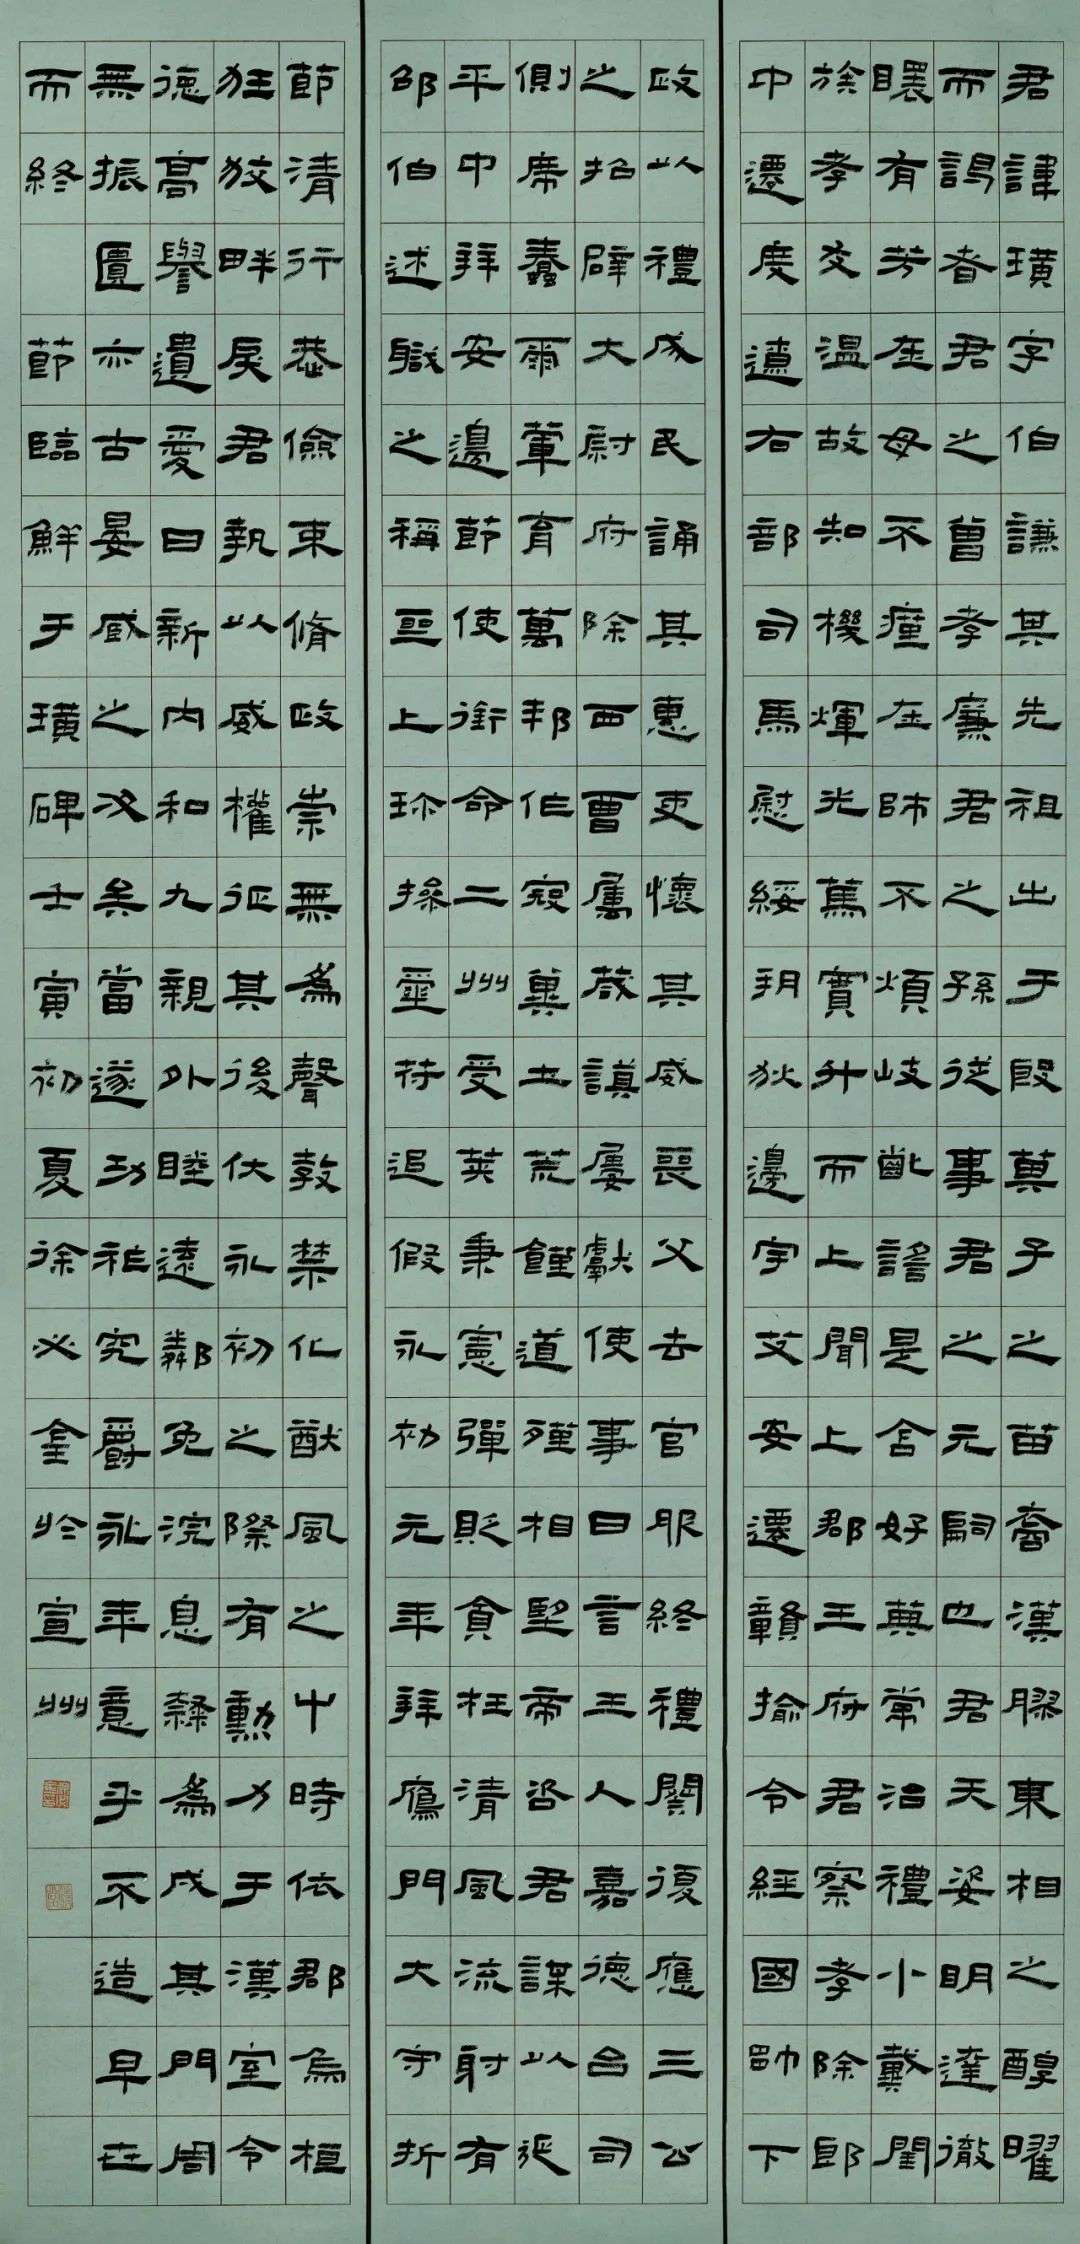 君諱璜字伯謙其先祖出于殷箕子之苗裔漢膠東相之醇曜
而謁者君之曾孝廉君之孫從事君之元嗣也君天姿明達徹
瞏有芳在母不瘽在師不煩岐齔謠是含好典常治禮小戴閨
族孝友溫故知機煇光篤實升而上聞上郡王府君察孝除郎
中遷度遼右部司馬慰綏朔狄邊宇艾安遷贛揄令經國帥下
政以禮成民誦其惠吏懷其威喪父去官服終禮闋復應三公
之招辟大尉府除西曹屬歲謨屢獻使事日言王人嘉德台司
側席蠢爾葷育萬邦作寇冀土荒饉道殣相望帝咨君謀以延
平中拜安邊節使銜命二州受莢秉憲彈貶貪枉清風流射有
邵伯述職之稱亟上珎操璽符追假永初元年拜鴈門大守折
節清行恭儉束脩政崇無爲聲教禁化猷風之中時依郡烏桓
狂狡畔戾君執以威權征其後伏永初之際有勳力于漢室令
德高譽遺愛日新內和九親外睦遠鄰免浣息隸爲成其門周
無振匱亦古晏臧之次矣當遂功祚究爵永年意乎不造早世
而終 節臨鮮于璜碑壬寅初夏徐必金於宣州